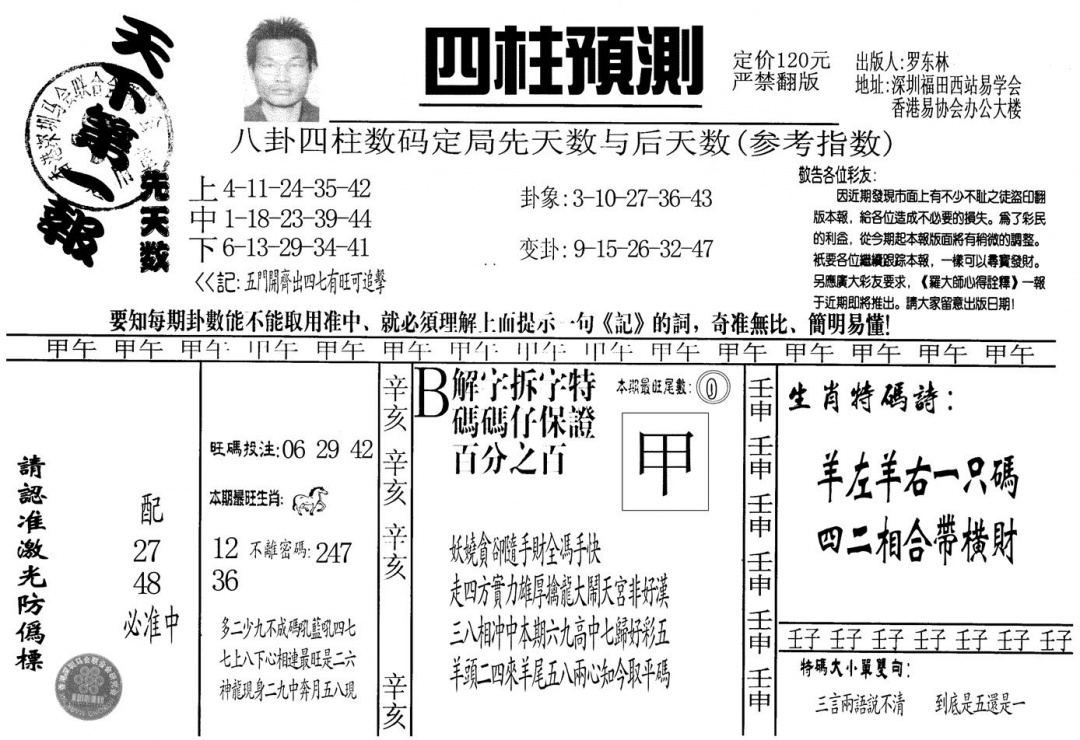 天下第一報
四柱預測
定价120元
严禁翻版
出版人:罗东林
地址:深圳福田西站易学会
香港易协会办公大楼
八卦四柱数码定局先天数与后天数(参考指数)
先天数
上 4-11-24-35-42
中 1-18-23-39-44
下 6-13-29-34-41
<<記: 五門開齊出四七有旺可追擊
卦象: 3-10-27-36-43
变卦: 9-15-26-32-47
敬告各位彩友:
因近期發現市面上有不少不恥之徒盜印翻
版本報，給各位造成不必要的損失。爲了彩民
的利益，從今期起本報版面將有稍微的調整。
衹要各位繼續跟踪本報，一樣可以尋寶發財。
另應廣大彩友要求，《羅大師心得詮釋》一報
于近期即將推出。請大家留意出版日期!
要知每期卦數能不能取用准中、就必須理解上面提示一句《記》的詞，奇准無比、簡明易懂!
甲午 甲午 甲午 甲午 甲午 甲午 甲午 甲午 甲午 甲午 甲午 甲午 甲午 甲午 甲午
請認准激光防僞標
配
27
48
必准中
旺碼投注: 06 29 42
本期最旺生肖:
12 不離密碼: 247
36
多二少九不成碼吼藍吼四七
七上八下心相連最旺是二六
神龍現身二九中奔月五八現
辛亥
辛亥
辛亥
辛亥
B 解字拆字特
碼碼仔保證
百分之百
本期最旺尾數: 0
甲
妖嬈貪卻隨手財全馮手快
走四方實力雄厚擒龍大鬧天宮非好漢
三八相冲中本期六九高中七歸好彩五
羊頭二四來羊尾五八兩心知今取平碼
壬申
壬申
壬申
壬申
壬申
壬申
生肖特碼詩:
羊左羊右一只碼
四二相合帶橫財
壬子 壬子 壬子 壬子 壬子 壬子 壬子
特碼大小單雙句:
三言兩語説不清 到底是五還是一